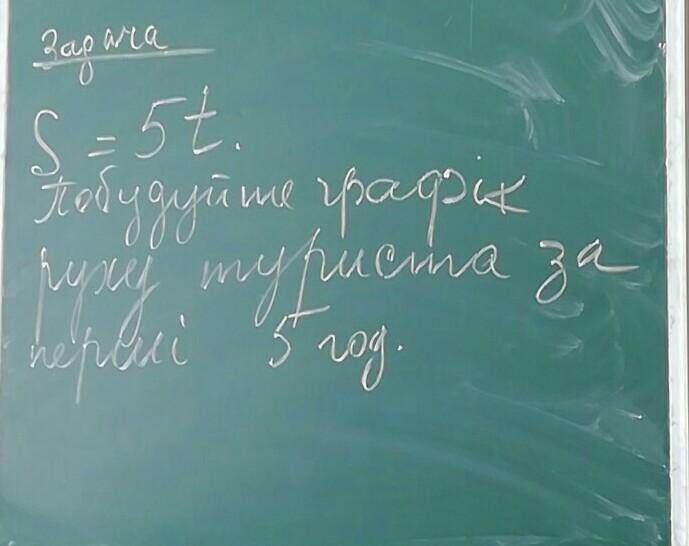 Задача
S = 5t.
Побудуйте графік
руху туриста за
перші 5 год.